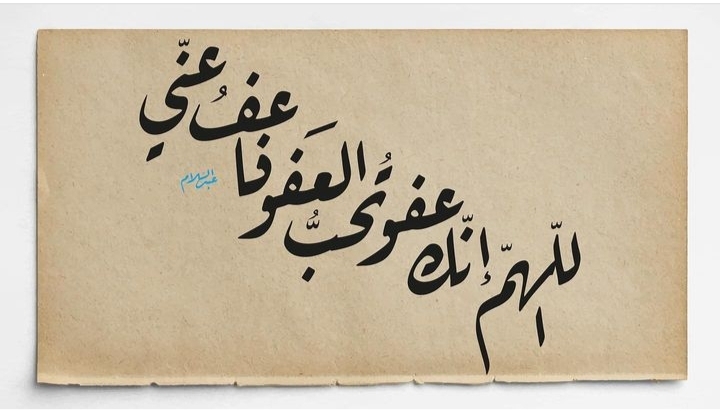 اللّهمّ إنّك عفوٌ تُحبُّ العَفو فاعفُ عنّي
عبدالسلام